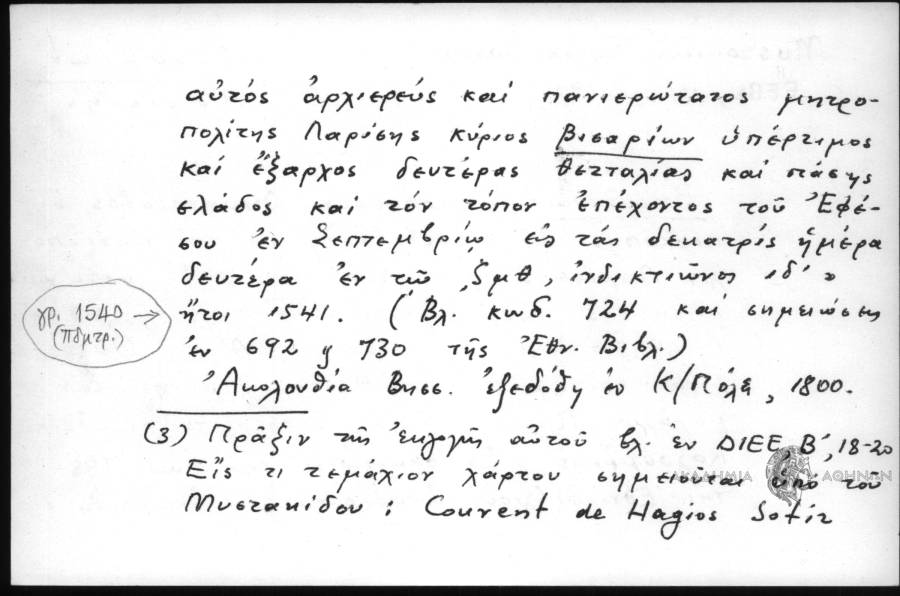 αὐτός ἀρχιερεύς καί πανιερώτατος μητρο-
πολίτης Λαρίσης κύριος βισαρίων ὑπέρτιμος
καί ἔξαρχος δευτέρας θετταλίας καί πάσης
ελάδος καί τόν τόπον ἐπέχοντος τοῦ Ἐφέ-
σου ἐν Σεπτεμβρίῳ εἰς τάς δεκατρίς ἡμέρα
δευτέρα ἐν τῶ ζμθ, ἰνδικτιῶνος ιδ´ »
γρ. 1540 → ἤτοι 1541. (Βλ. κωδ. 724 καί σημειώσεις
(Πδμτρ.)
ἐν 692 ᾗ 730 τῆς Ἐθν. Βιβλ.)
Ἀκολουθία Βησσ. ἐξεδόθη ἐν Κ/Πόλει, 1800.
(3) Πρᾶξιν τῆς ἐκλογῆς αὐτοῦ βλ. ἐν ΔΙΕΕ, Β´, 18-20
Εἴς τι τεμάχιον χάρτου σημειοῦται ὑπό τοῦ
Μυστακίδου: Couvent de Hagios Sotir
ΑΚΑΔΗΜΙΑ ΑΘΗΝΩΝ